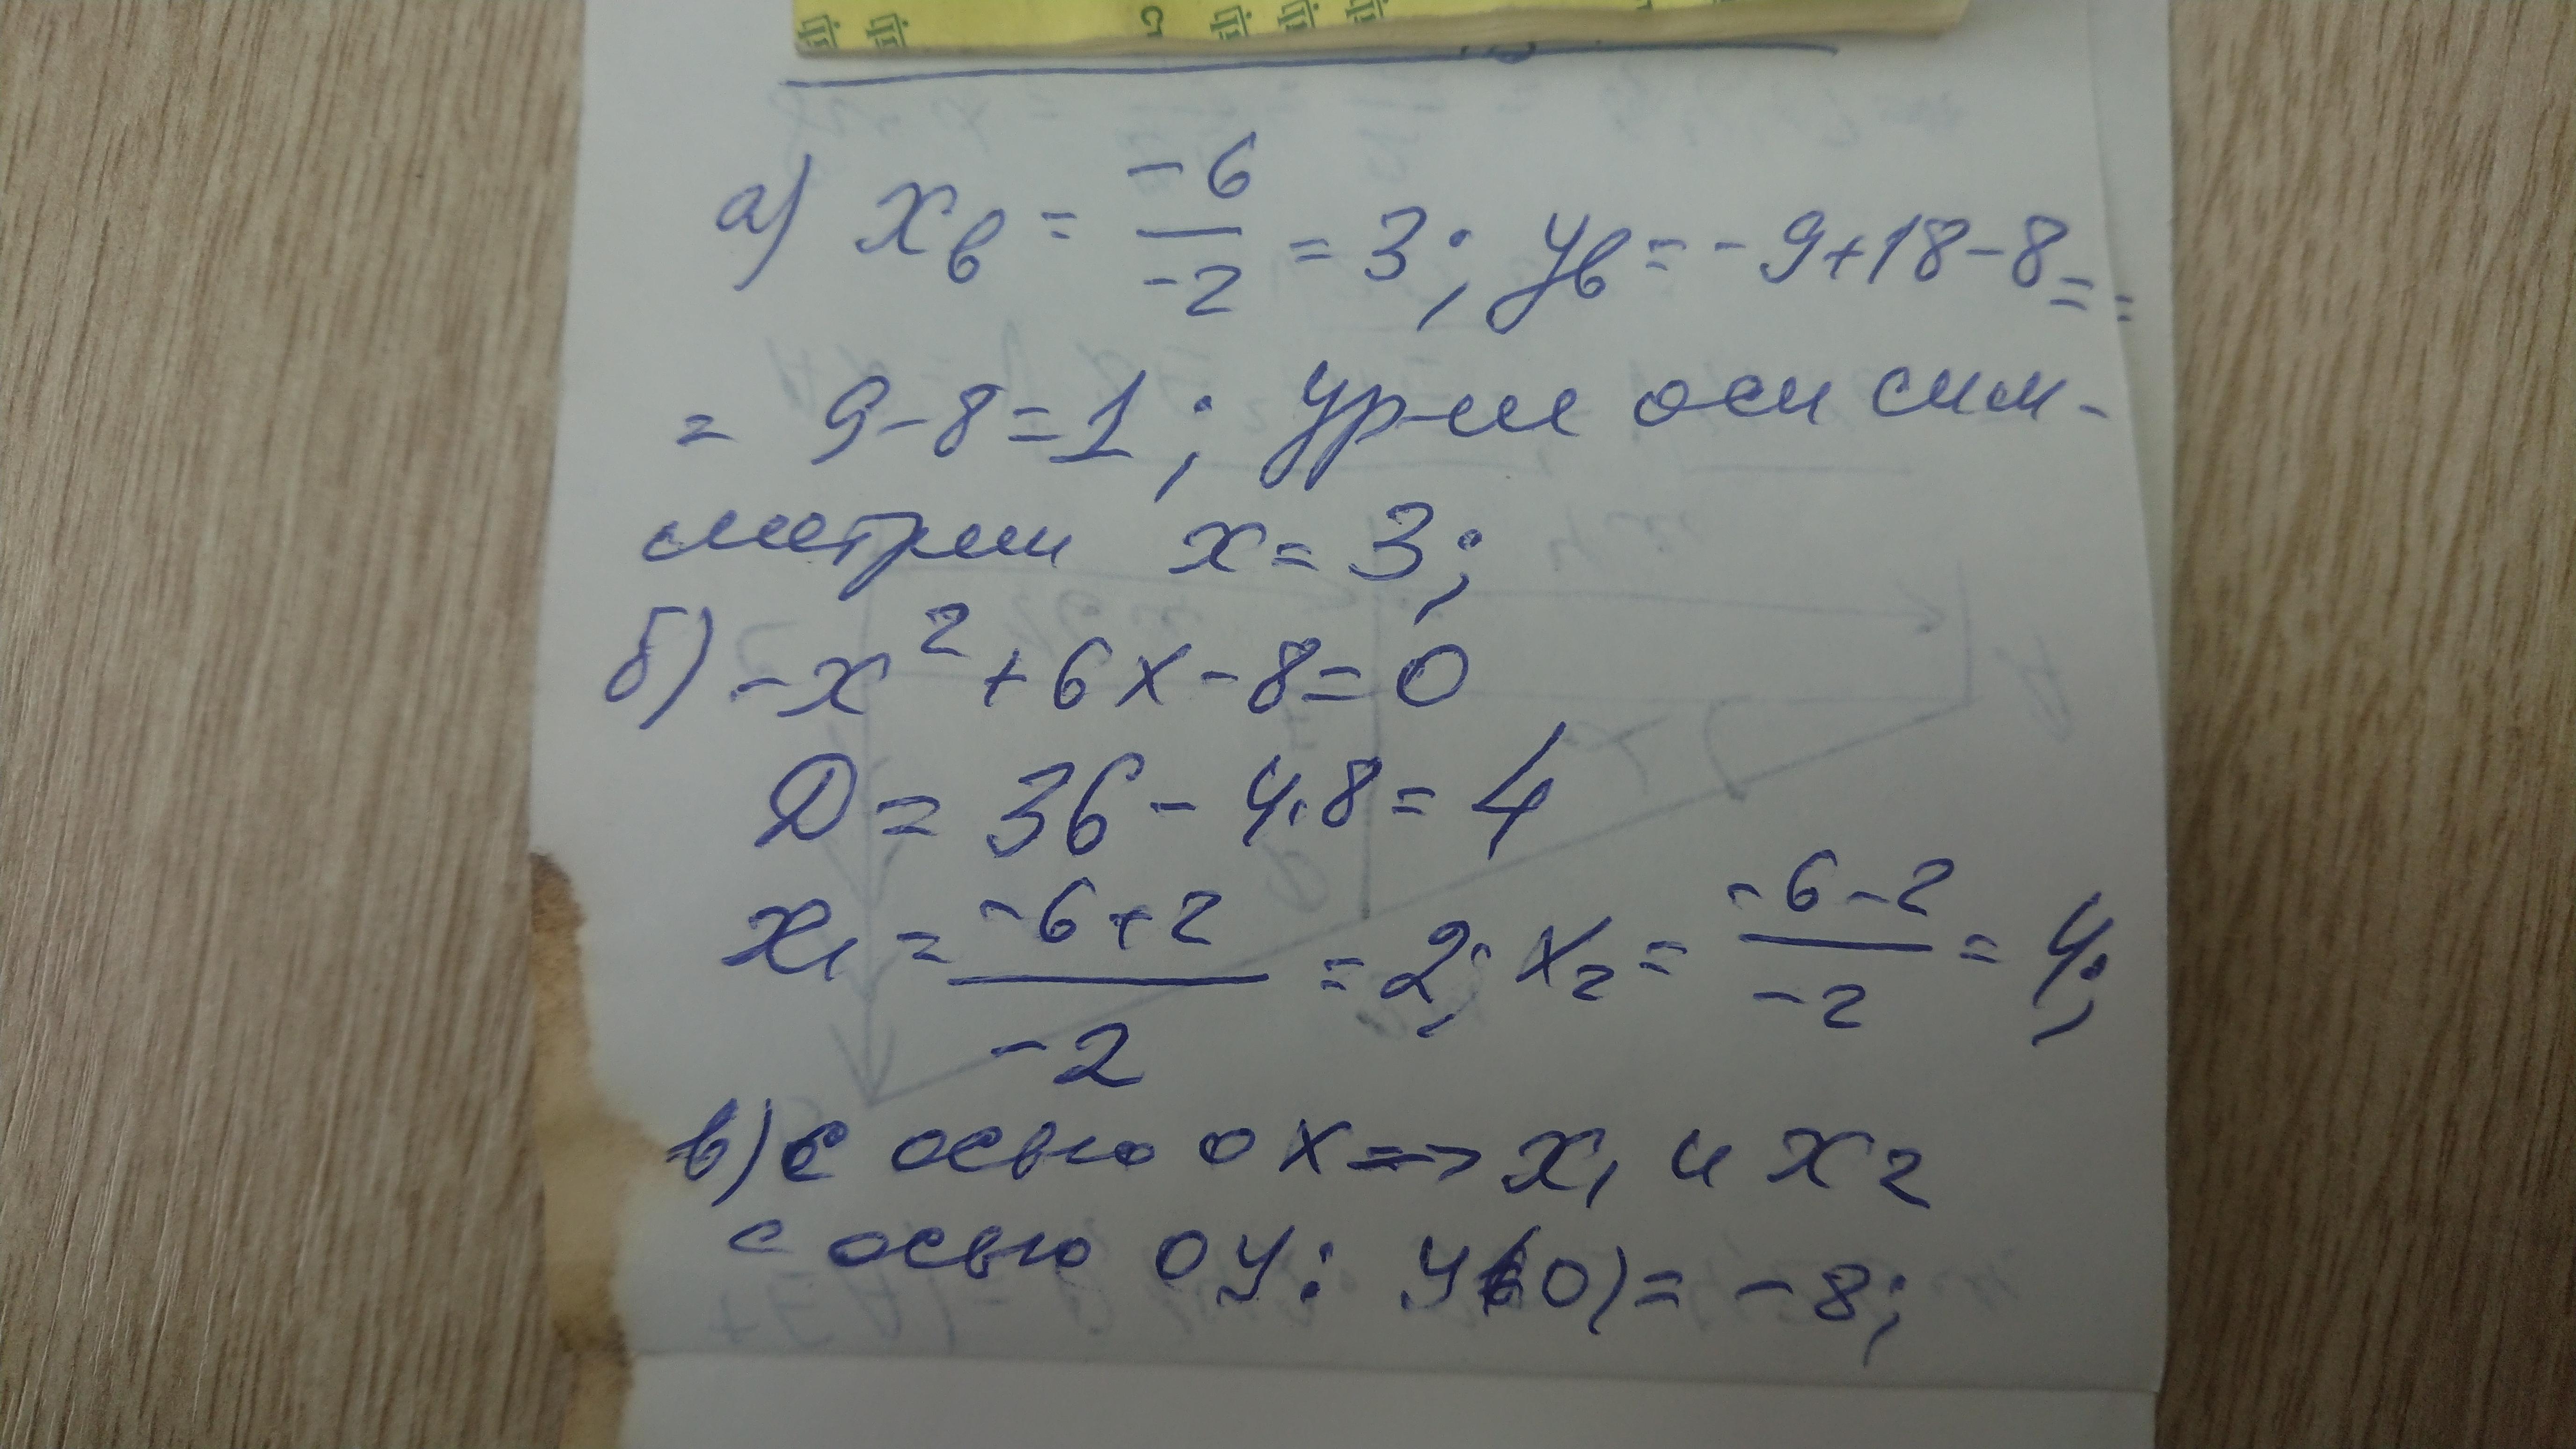 а) xв = -6/-2 = 3; yв = -9+18-8 = =
= 9-8=1; ур-ие оси сим-
метрии x = 3;
б) -x² + 6x - 8 = 0
D = 36 - 4·8 = 4
x₁ = -6+2/-2 = 2; x₂ = -6-2/-2 = 4;
в) с осью ox => x₁ и x₂
с осью oy: y(0) = -8;